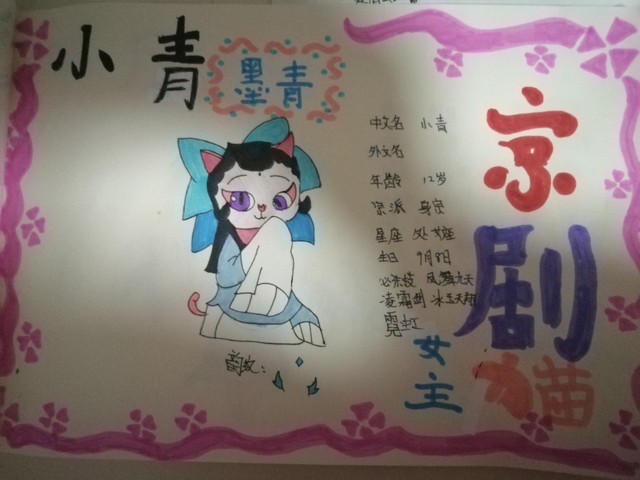 小青
墨青
京剧猫
中文名 小青
外文名
年龄 12岁
京派 身宗
星座 处女座
生日 9月8日
必杀技 凤舞九天
凌霜剑 冰玉天翔
霓虹
女主